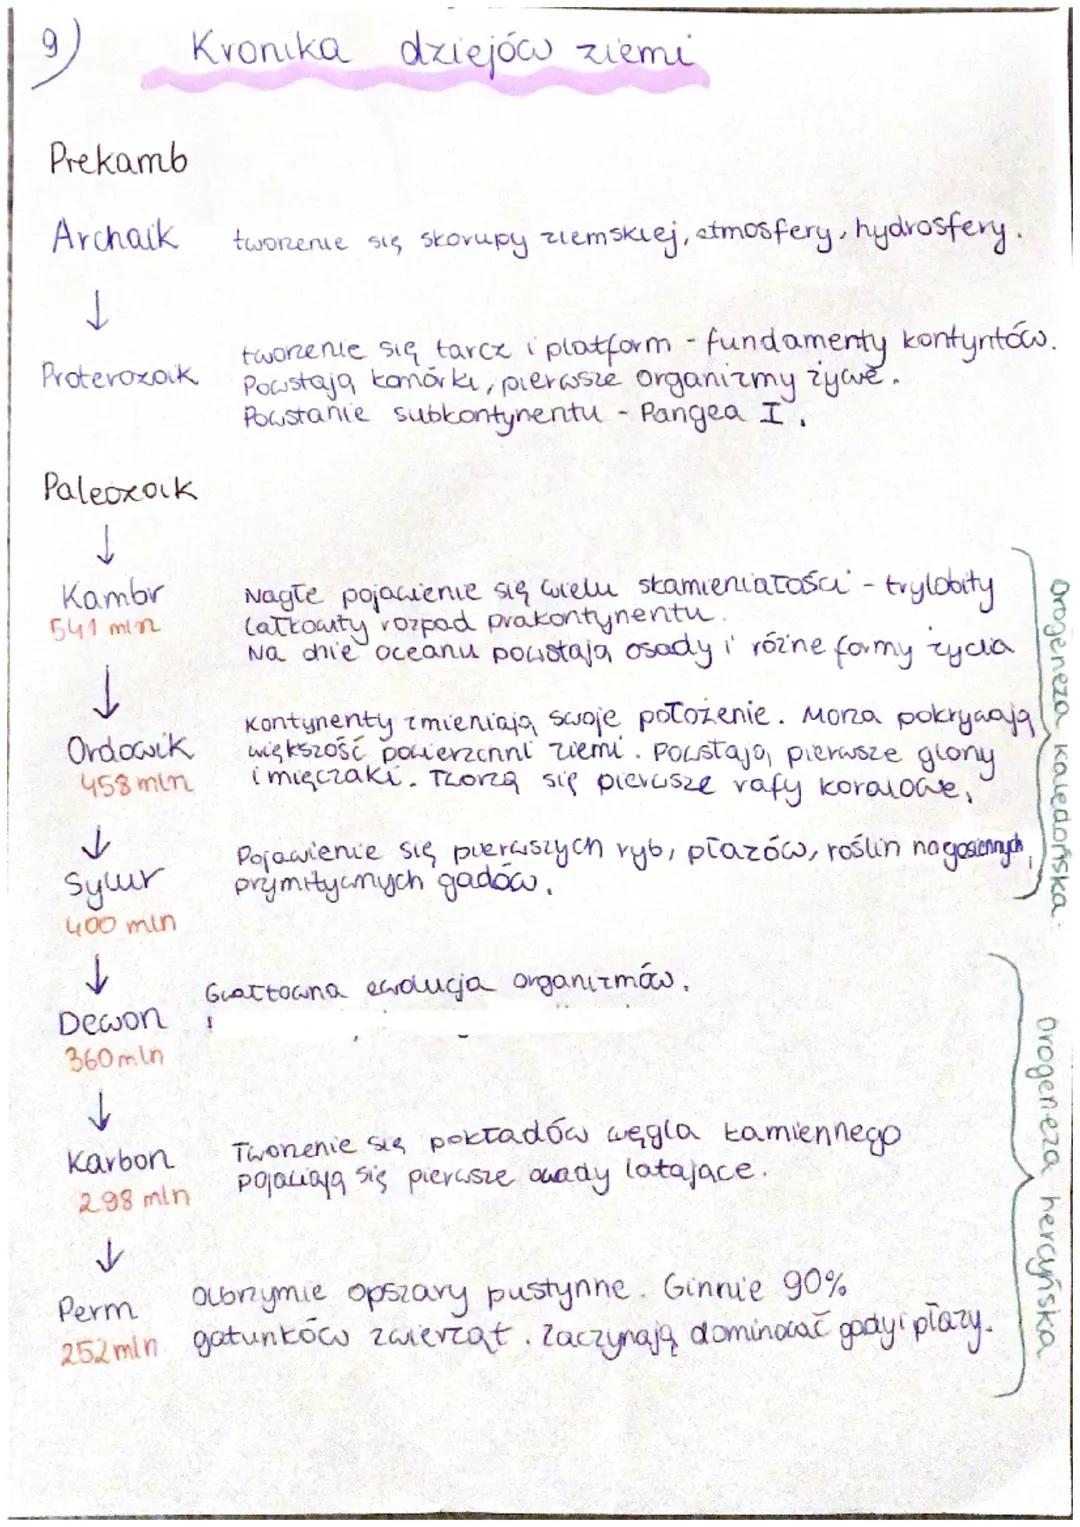 9) Kronika dziejów ziemi
Prekamb
Archaik tworzenie się skorupy ziemskiej, atmosfery, hydrosfery.
↓
Proterozoik tworzenie się tarcz i platform - fundamenty kontyntów.
Powstają komórki, pierwsze organizmy żywe.
Powstanie subkontynentu - Pangea I.
Paleozoik
↓
Kambr Nagłe pojawienie się wielu skamieniałości - trylobity
541 mln Całkowity rozpad prakontynentu.
Na dnie oceanu powstają osady i różne formy życia
↓
Kontynenty zmieniają swoje położenie. Morza pokrywają
Ordowik większość powierzchni ziemi. Powstają pierwsze glony
458 mln i mięczaki. Tworzą się pierwsze rafy koralowe.
↓
Sylur Pojawienie się pierwszych ryb, płazów, roślin nagosiennych,
prymitywnych gadów.
400 mln
Orogeneza kaledońska.
↓
Gwałtowna ewolucja organizmów.
Dewon
360 mln
↓
Karbon Tworzenie się pokładów węgla kamiennego
298 mln pojawiają się pierwsze owady latające.
↓
Perm olbrzymie opszary pustynne. Ginnie 90%
252 mln gatunków zwierząt. Zaczynają dominować gady i płazy.
Orogeneza hercyńska